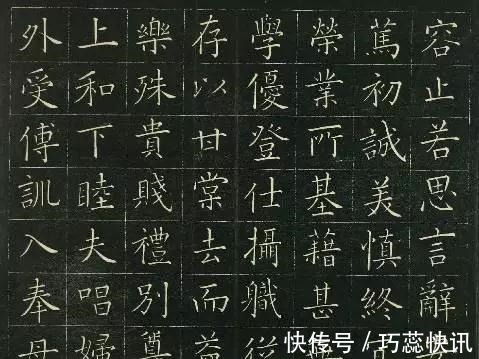 容止若思言辭
篤初誠美慎終
榮業所基藉甚
學優登仕攝職從
存以甘棠去而益
樂殊貴賤禮別尊
上和下睦夫唱婦
外受傅訓入奉母
快传号 / 巧蕊快讯